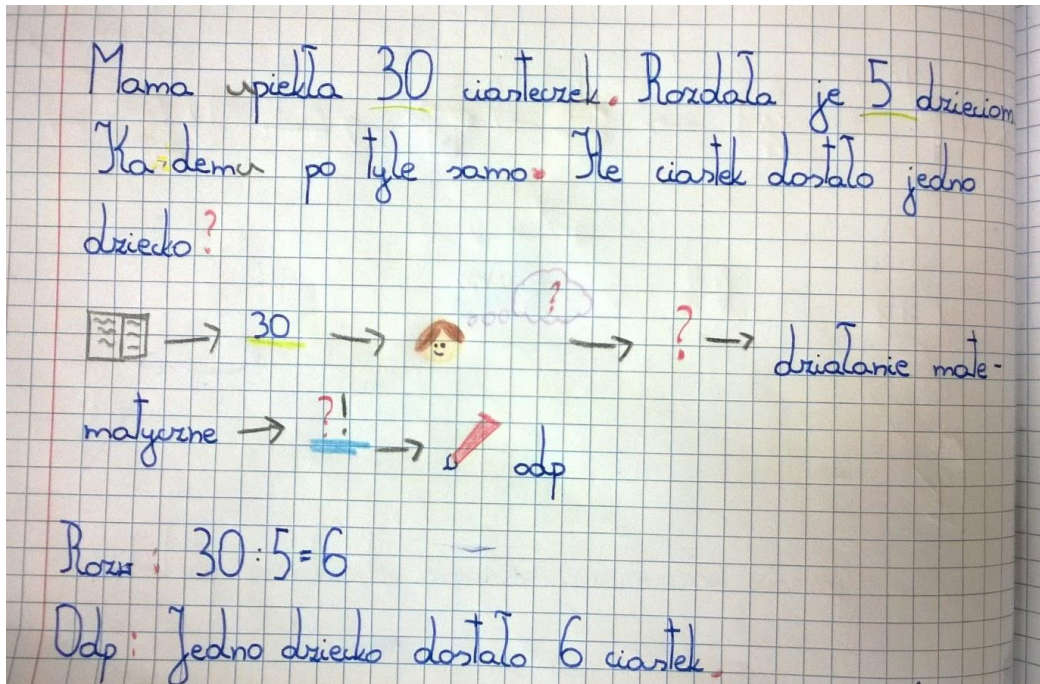 Mama upiekła 30 ciasteczek. Rozdała je 5 dzieciom
Każdemu po tyle samo. Ile ciastek dostało jedno
dziecko?
→ 30 → ? → ? → działanie mate-
matyczne → ?! → odp
Rozw: 30:5=6
Odp: Jedno dziecko dostało 6 ciastek.